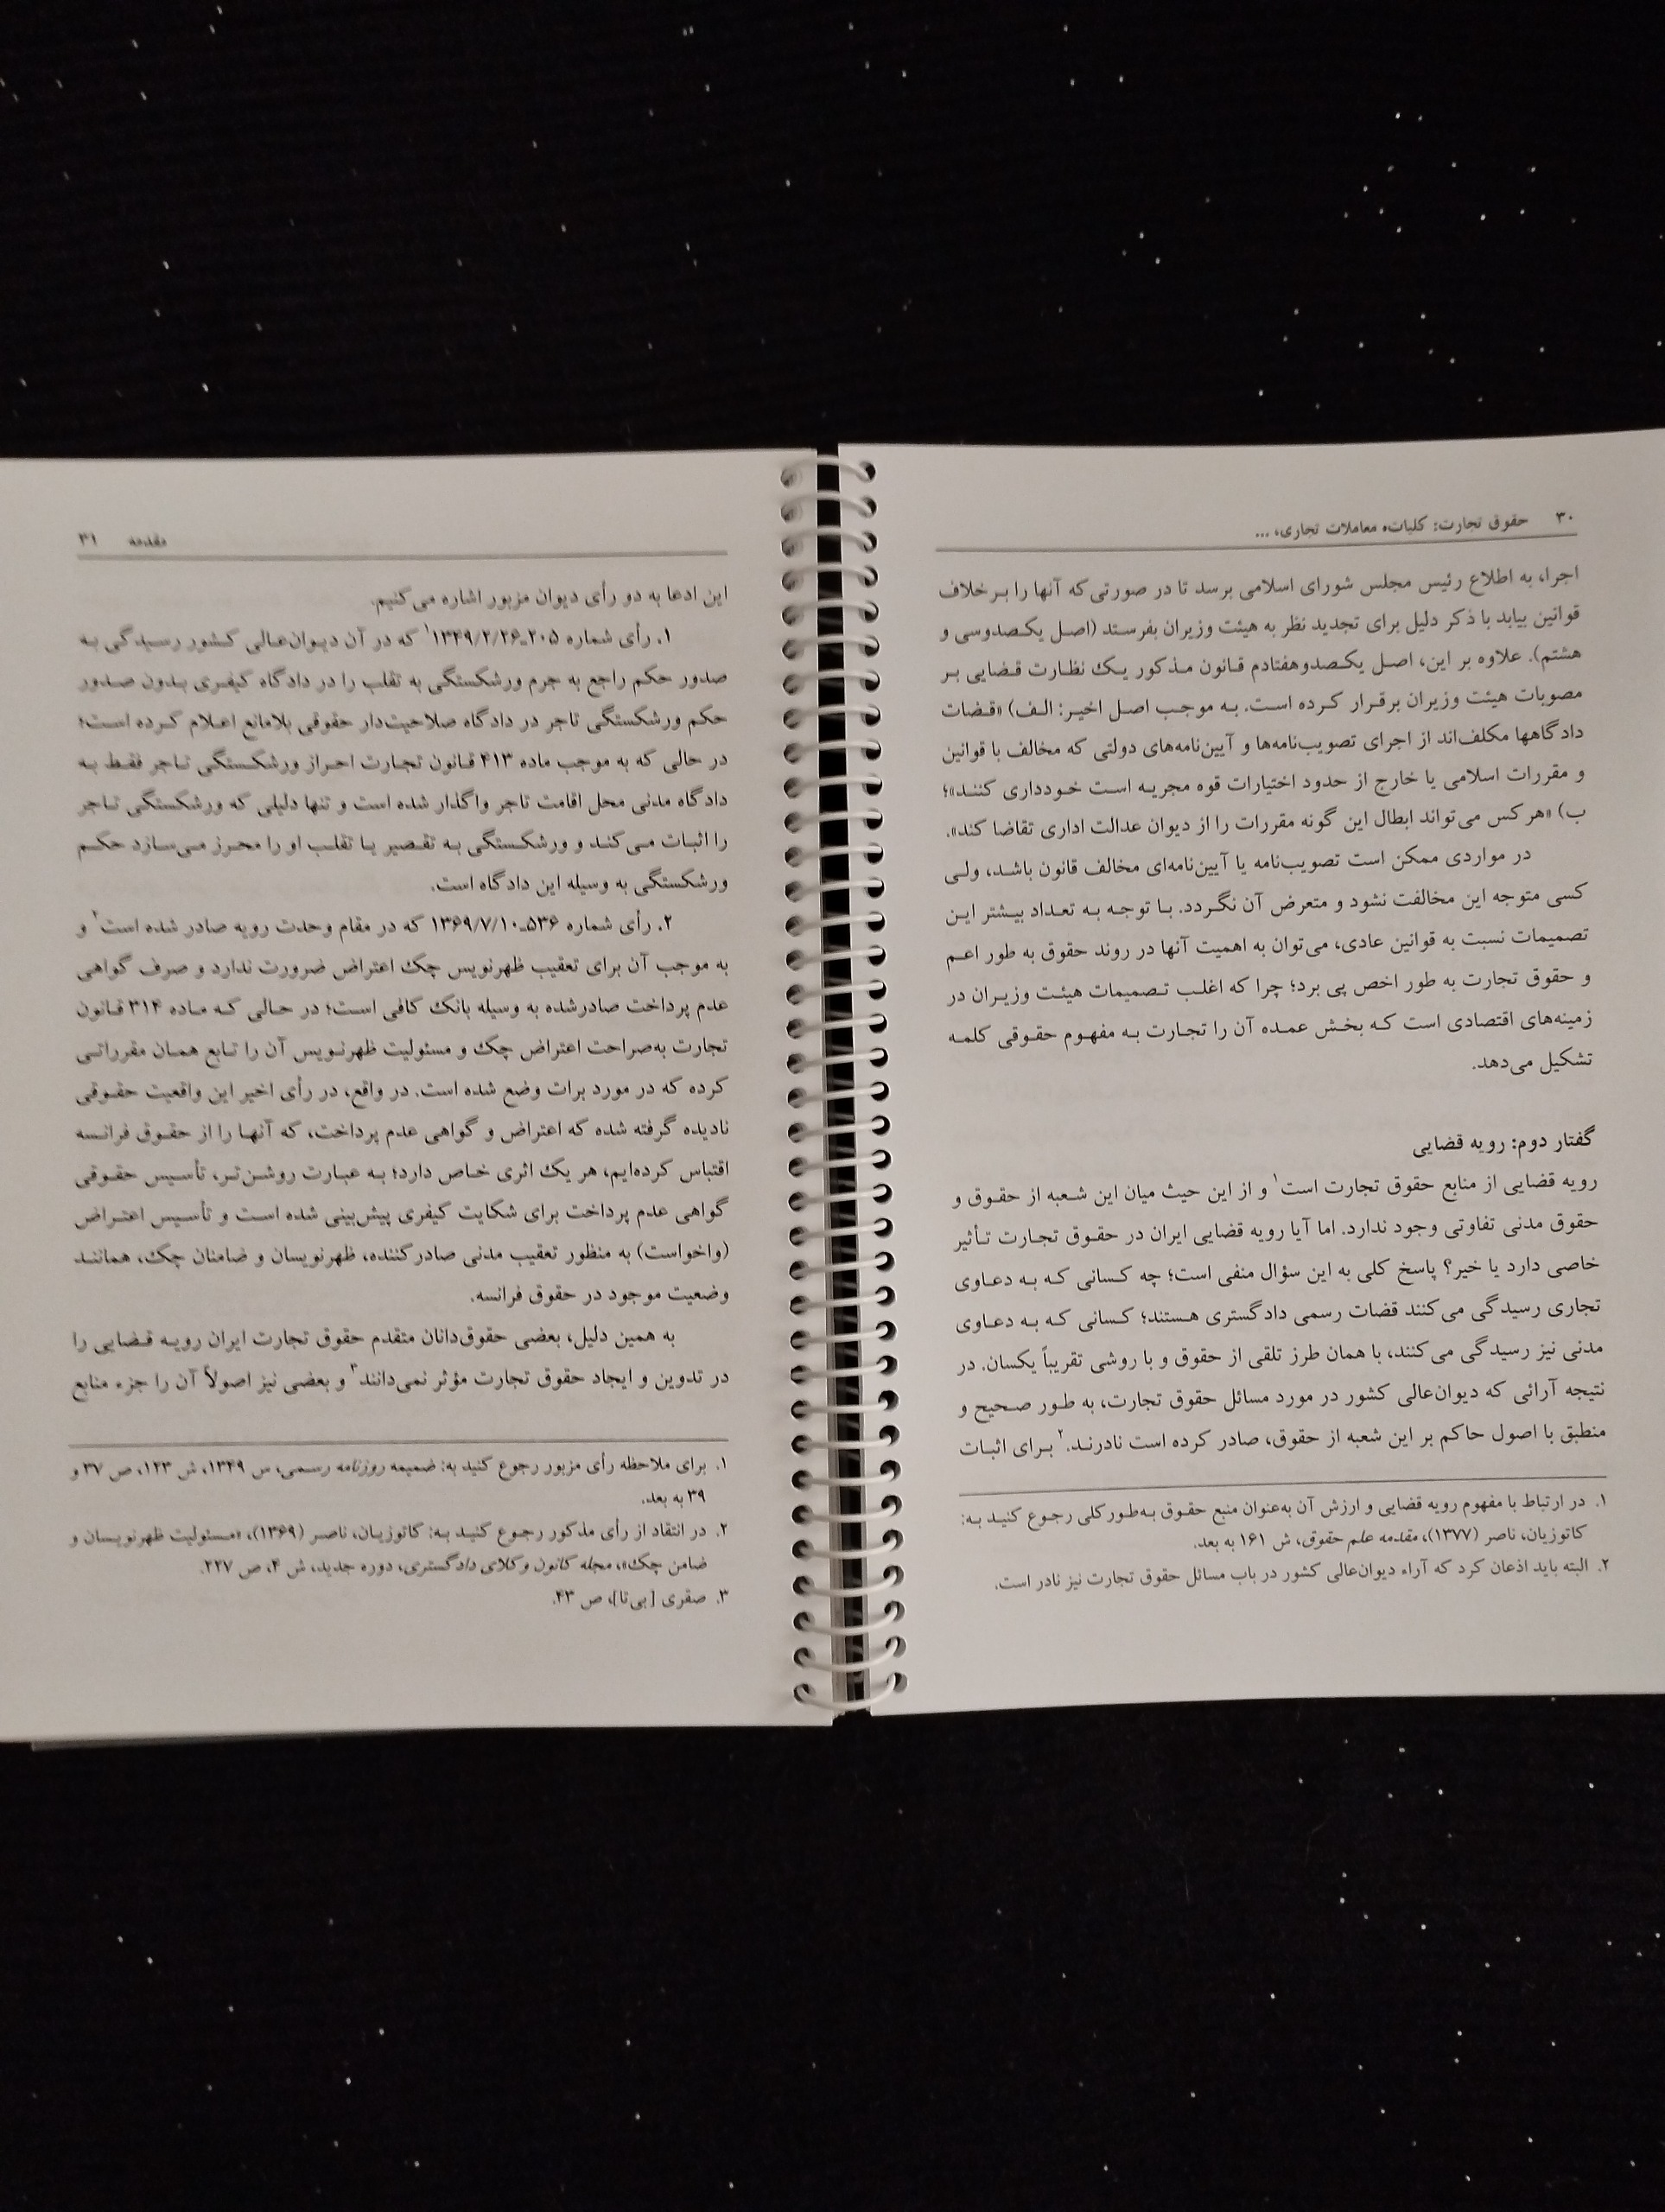 ۳۰ حقوق تجارت: کلیات، معاملات تجاری، ...
اجرا، به اطلاع رئیس مجلس شورای اسلامی برسد تا در صورتی که آنها را بر خلاف
قوانین بیابد با ذکر دلیل برای تجدید نظر به هیئت وزیران بفرستد (اصل یکصدوسی و
هشتم). علاوه بر این، اصل یکصدوهفتادم قانون مذکور یک نظارت قضایی بر
مصوبات هیئت وزیران برقرار کرده است. به موجب اصل اخیر: الف) «قضات
دادگاهها مکلف‌اند از اجرای تصویب‌نامه‌ها و آیین‌نامه‌های دولتی که مخالف با قوانین
و مقررات اسلامی یا خارج از حدود اختیارات قوه مجریه است خودداری کنند»؛
ب) «هر کس می‌تواند ابطال این گونه مقررات را از دیوان عدالت اداری تقاضا کند».
در مواردی ممکن است تصویب‌نامه یا آیین‌نامه‌ای مخالف قانون باشد، ولی
کسی متوجه این مخالفت نشود و متعرض آن نگردد. با توجه به تعداد بیشتر این
تصمیمات نسبت به قوانین عادی، می‌توان به اهمیت آنها در روند حقوق به طور اعم
و حقوق تجارت به طور اخص پی برد؛ چرا که اغلب تصمیمات هیئت وزیران در
زمینه‌های اقتصادی است که بخش عمده آن را تجارت به مفهوم حقوقی کلمه
تشکیل می‌دهد.
گفتار دوم: رویه قضایی
رویه قضایی از منابع حقوق تجارت است۱ و از این حیث میان این شعبه از حقوق و
حقوق مدنی تفاوتی وجود ندارد. اما آیا رویه قضایی ایران در حقوق تجارت تأثیر
خاصی دارد یا خیر؟ پاسخ کلی به این سؤال منفی است؛ چه کسانی که به دعاوی
تجاری رسیدگی می‌کنند قضات رسمی دادگستری هستند؛ کسانی که به دعاوی
مدنی نیز رسیدگی می‌کنند، با همان طرز تلقی از حقوق و با روشی تقریباً یکسان. در
نتیجه آرائی که دیوان‌عالی کشور در مورد مسائل حقوق تجارت، به طور صحیح و
منطبق با اصول حاکم بر این شعبه از حقوق، صادر کرده است نادرند.۲ برای اثبات
۱. در ارتباط با مفهوم رویه قضایی و ارزش آن به‌عنوان منبع حقوق به‌طورکلی رجوع کنید به:
کاتوزیان، ناصر (۱۳۷۷)، مقدمه علم حقوق، ش ۱۶۱ به بعد.
۲. البته باید اذعان کرد که آراء دیوان‌عالی کشور در باب مسائل حقوق تجارت نیز نادر است.
مقدمه ۳۱
این ادعا به دو رأی دیوان مزبور اشاره می‌کنیم.
۱. رأی شماره ۲۰۵ـ۱۳۴۹/۲/۲۶۱ که در آن دیوان‌عالی کشور رسیدگی به
صدور حکم راجع به جرم ورشکستگی به تقلب را در دادگاه کیفری بدون صدور
حکم ورشکستگی تاجر در دادگاه صلاحیت‌دار حقوقی بلامانع اعلام کرده است؛
در حالی که به موجب ماده ۴۱۳ قانون تجارت احراز ورشکستگی تاجر فقط به
دادگاه مدنی محل اقامت تاجر واگذار شده است و تنها دلیلی که ورشکستگی تاجر
را اثبات می‌کند و ورشکستگی به تقصیر یا تقلب او را محرز می‌سازد حکم
ورشکستگی به وسیله این دادگاه است.
۲. رأی شماره ۵۳۶ـ۱۳۶۹/۷/۱۰ که در مقام وحدت رویه صادر شده است۲ و
به موجب آن برای تعقیب ظهرنویس چک اعتراض ضرورت ندارد و صرف گواهی
عدم پرداخت صادرشده به وسیله بانک کافی است؛ در حالی که ماده ۳۱۴ قانون
تجارت به‌صراحت اعتراض چک و مسئولیت ظهرنویس آن را تابع همان مقرراتی
کرده که در مورد برات وضع شده است. در واقع، در رأی اخیر این واقعیت حقوقی
نادیده گرفته شده که اعتراض و گواهی عدم پرداخت، که آنها را از حقوق فرانسه
اقتباس کرده‌ایم، هر یک اثری خاص دارد؛ به عبارت روشن‌تر، تأسیس حقوقی
گواهی عدم پرداخت برای شکایت کیفری پیش‌بینی شده است و تأسیس اعتراض
(واخواست) به منظور تعقیب مدنی صادرکننده، ظهرنویسان و ضامنان چک، همانند
وضعیت موجود در حقوق فرانسه.
به همین دلیل، بعضی حقوق‌دانان متقدم حقوق تجارت ایران رویه قضایی را
در تدوین و ایجاد حقوق تجارت مؤثر نمی‌دانند۳ و بعضی نیز اصولاً آن را جزء منابع
۱. برای ملاحظه رأی مزبور رجوع کنید به: ضمیمه روزنامه رسمی، س ۱۳۴۹، ش ۱۲۳، ص ۳۷ و
۳۹ به بعد.
۲. در انتقاد از رأی مذکور رجوع کنید به: کاتوزیان، ناصر (۱۳۶۹)، «مسئولیت ظهرنویسان و
ضامن چک»، مجله کانون وکلای دادگستری، دوره جدید، ش ۴، ص ۲۲۷.
۳. صقری [بی‌تا]، ص ۴۳.